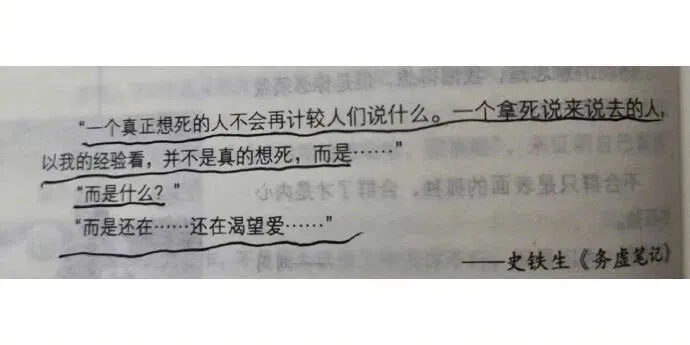 “一个真正想死的人不会再计较人们说什么。一个拿死说来说去的人,
以我的经验看，并不是真的想死，而是……”
“而是什么？”
“而是还在……还在渴望爱……”
——史铁生《务虚笔记》